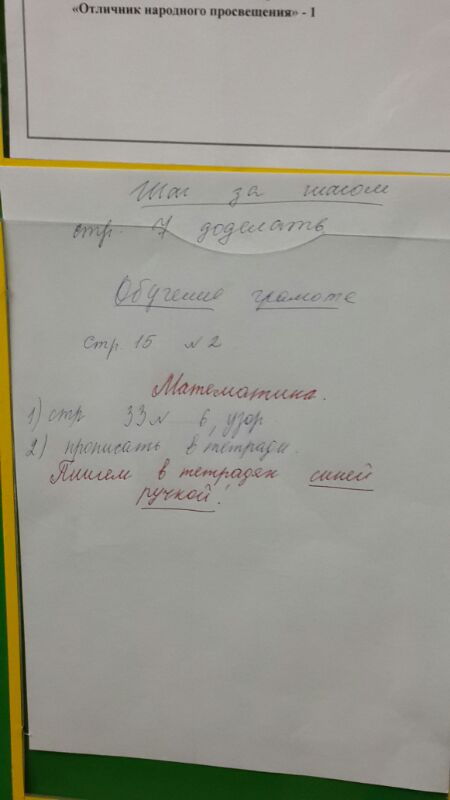 «Отличник народного просвещения» - 1
Шаг за шагом
стр. 7 доделать
Обучение грамоте
стр. 15 №2
Математика.
1) стр 33 № 6, узор
2) прописать в тетради.
Пишем в тетрадях синей
ручкой!